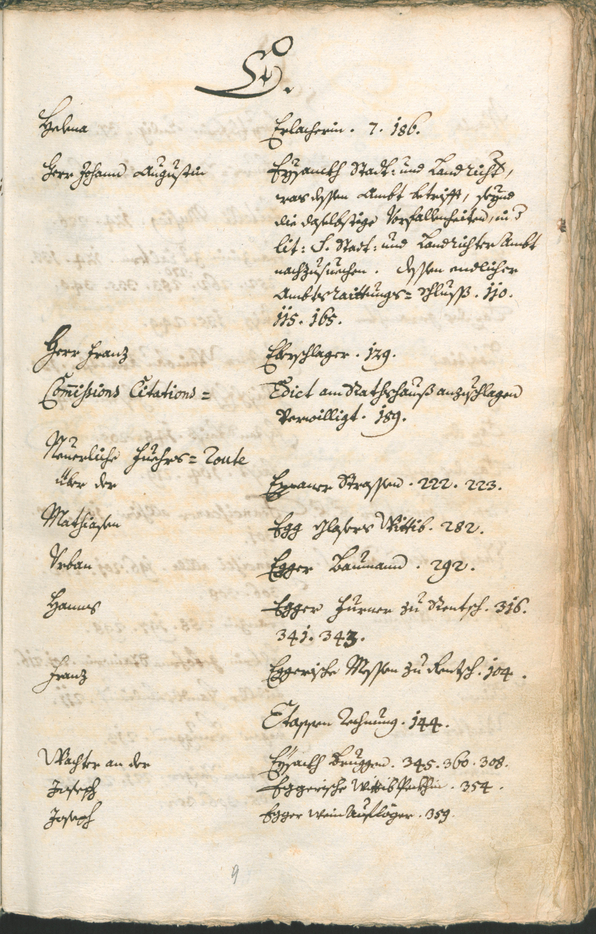 E.
Helena Erlacherin. 7. 186.
Herr Johann Augustin Eysanckh Stadt: und Landricht,
was dessen Ambt betrifft, seynd
die daselbstige Vorfallenheiten, in
lit: S. Stadt: und Landrichter Ambt
nachzusuechen. dessen endlicher
Ambts Raittungs= Schluss. 110.
115. 165.
Herr Franz Eberschlager. 129.
Commissions Citations= Edict am Rathshauß anzuschlagen
verwilligt. 189.
Neuerliche Fuehrs= Route
über der Eppaner Strassen. 222. 223.
Mathiasen Egg Glasers Wittib. 282.
Urban Egger Baumann. 292.
Hanns Egger zu Rentsch. 316.
341. 343.
Franz Eggerische Messen zu Rentsch. 104.
Etappen Rechnung. 144.
Wachter an der Eysackh Bruggen. 345. 360. 308.
Joseph Eggerische Wittib. 354.
Joseph Egger Wein Aufleger. 359.
9